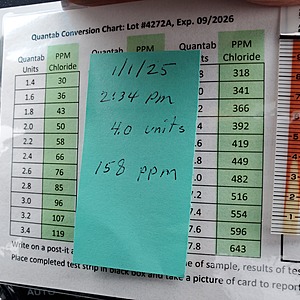 Quantab Conversion Chart: Lot #4272A, Exp. 09/2026
Quantab Units PPM Chloride
1.4 30
1.6 36
1.8 43
2.0 50
2.2 58
2.4 66
2.6 76
2.8 85
3.0 96
3.2 107
3.4 119
1/1/25
2:34 pm
4.0 units
158 ppm
PPM Chloride
.8 318
.0 341
.2 366
.4 392
.6 419
.8 449
.0 482
.2 516
7.4 554
7.6 596
7.8 643
Write on a post-it
me of sample, results of tes
Place completed test strip in black box and take a picture of card to report